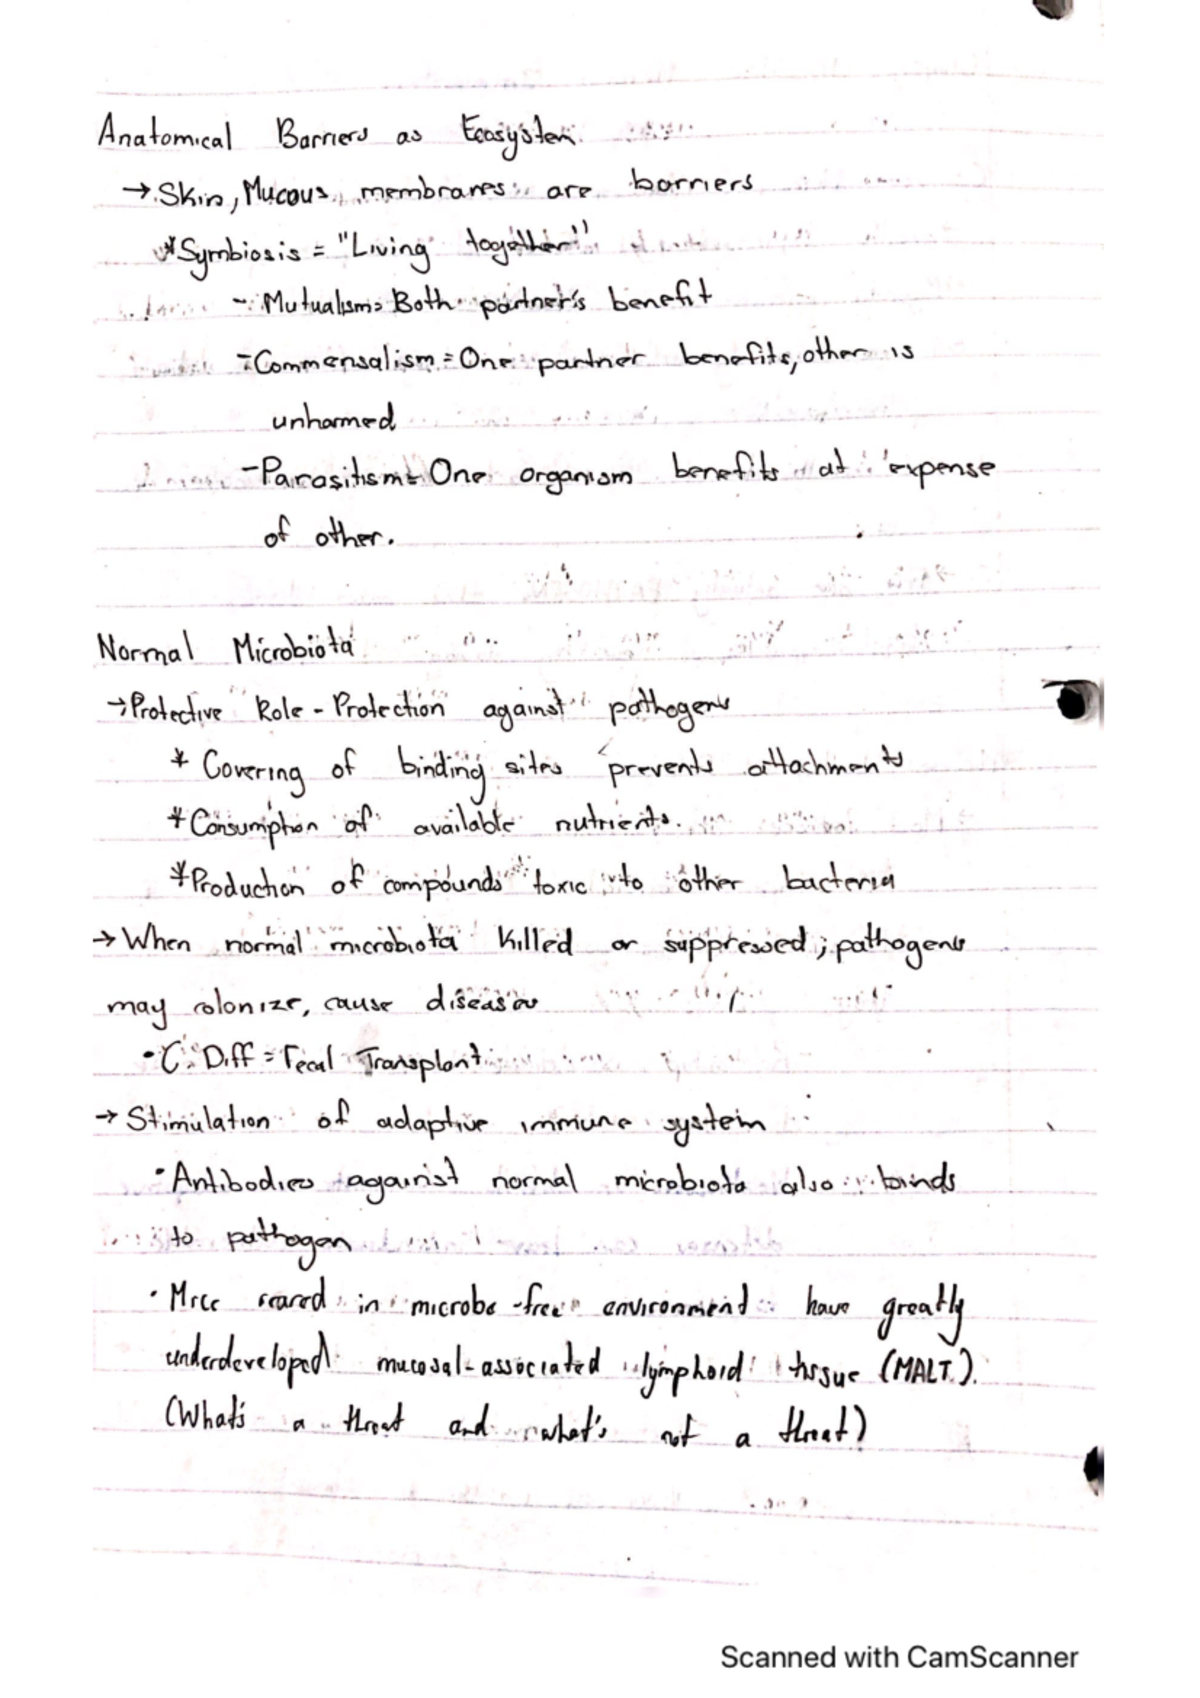 Anatomical Barriers as Ecosystem
→ Skin, Mucous membranes are barriers
*Symbiosis = "Living together"
- Mutualism = Both partner's benefit
- Commensalism = One partner benefits, other is
unharmed
- Parasitism = One organism benefits at expense
of other.
Normal Microbiota
→ Protective Role - Protection against pathogens
* Covering of binding sites prevents attachments
* Consumption of available nutrients.
* Production of compounds toxic to other bacteria
→ When normal microbiota killed or suppressed; pathogens
may colonize, cause diseases
• C. Diff = Fecal Transplant
→ Stimulation of adaptive immune system
• Antibodies against normal microbiota also binds
to pathogen
• Mice reared in microbe-free environment have greatly
underdeveloped mucosal-associated lymphoid tissue (MALT).
(What's a threat and what's not a threat)
Scanned with CamScanner